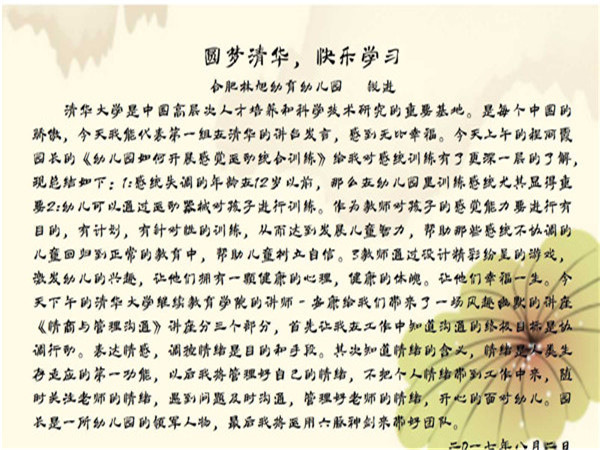 圆梦清华，快乐学习
合肥林旭幼育幼儿园 程进
清华大学是中国高层次人才培养和科学技术研究的重要基地。是每个中国的
骄傲，今天我能代表第一组在清华的讲台发言，感到无比幸福。今天上午的程丽霞
园长的《幼儿园如何开展感觉运动统合训练》给我对感统训练有了更深一层的了解，
现总结如下：1:感统失调的年龄在12岁以前，那么在幼儿园里训练感统尤其显得重
要2:幼儿可以通过运动器械对孩子进行训练。作为教师对孩子的感觉能力要进行有
目的，有计划，有针对性的训练，从而达到发展儿童智力，帮助那些感统不协调的
儿童回归到正常的教育中，帮助儿童树立自信。3教师通过设计精彩纷呈的游戏，
激发幼儿的兴趣，让他们拥有一颗健康的心理，健康的体魄。让他们幸福一生。今
天下午的清华大学继续教育学院的讲师-安康给我们带来了一场风趣幽默的讲座
《情商与管理沟通》讲座分三个部分，首先让我在工作中知道沟通的终极目标是协
调行动。表达情感，调控情绪是目的和手段。其次知道情绪的含义，情绪是人类生
存适应的第一功能，以后我将管理好自己的情绪，不把个人情绪带到工作中来，随
时关注老师的情绪，遇到问题及时沟通，管理好老师的情绪，开心的面对幼儿。园
长是一所幼儿园的领军人物，最后我将运用六脉神剑来带好团队。
二〇一七年八月二日